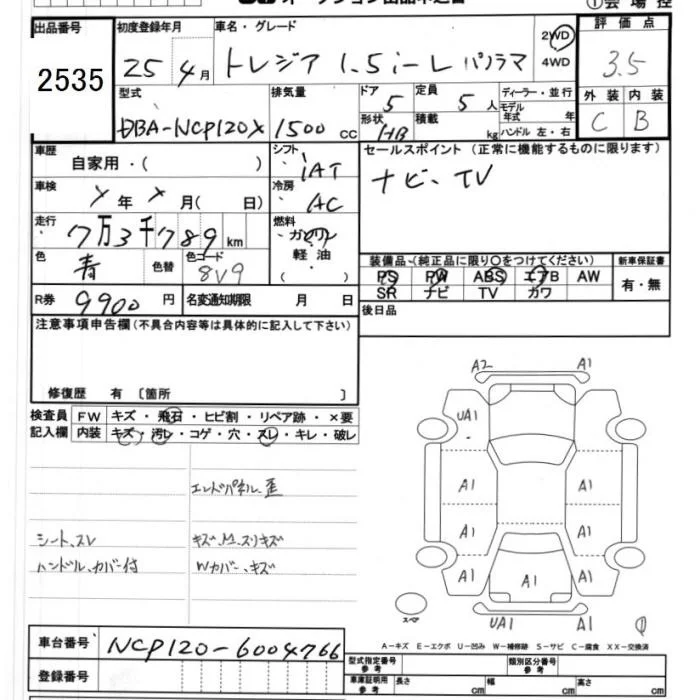 オークション出品申込書
①会場控
出品番号 初度登録年月 車名・グレード 評価点
2535 25年4月 トレジア 1.5 i-L パノラマ 2WD 4WD 3.5
型式 排気量 ドア 5 定員 5人 ディーラー・並行 外装 内装
DBA-NCP120X 1500cc 形状 HB 積載 kg モデル年式 年 ハンドル 左・右 C B
車歴 自家用・( ) シフト IAT セールスポイント (正常に機能するものに限ります)
車検 年 月( 日) 冷房 AC ナビ、TV
走行 7万3千789km 燃料 ・ガソリン ・軽油 ・( )
色 青 色替 色コード 8V9 装備品 (純正品に限り○をつけてください) 新車保証書
PS PW ABS エアB AW 有・無
SR ナビ TV カワ
R券 9900円 名変通知期限 月 日 後日品
注意事項申告欄(不具合内容等は具体的に記入して下さい)
修復歴 有 〔箇所 〕
検査員 FW キズ・飛石・ヒビ割・リペア跡・×要
記入欄 内装 キズ・汚レ・コゲ・穴・スレ・キレ・破レ
エンドパネル、歪
シート、スレ キズ、M、スリキズ
ハンドル、カバー付 Wカバー、キズ
A2 A1
UA1
A1 A1
A1 A1
A1 A1 A1
スペア UA1 A1 ①
A-キズ E-エクボ U-凹み W-補修跡 S-サビ C-腐食 XX-交換済
車台番号 NCP120-6004766
型式指定番号 参考 類別区分番号 参考
登録番号 車庫証明用 参考 長さ cm 幅 cm 高さ cm